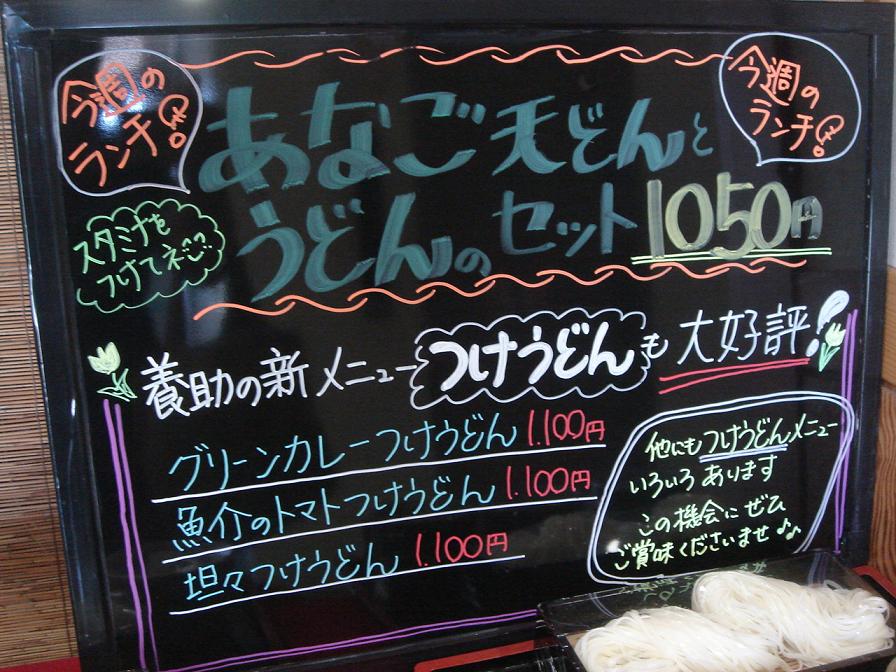 今週の
ランチ!
今週の
ランチ!
あなご天どんと
うどんのセット 1050円
スタミナを
つけてネ
養助の新メニュー つけうどんも 大好評!
グリーンカレーつけうどん 1.100円
魚介のトマトつけうどん 1.100円
坦々つけうどん 1.100円
他にもつけうどんメニュー
いろいろあります
この機会にぜひ
ご賞味くださいませ♪♪